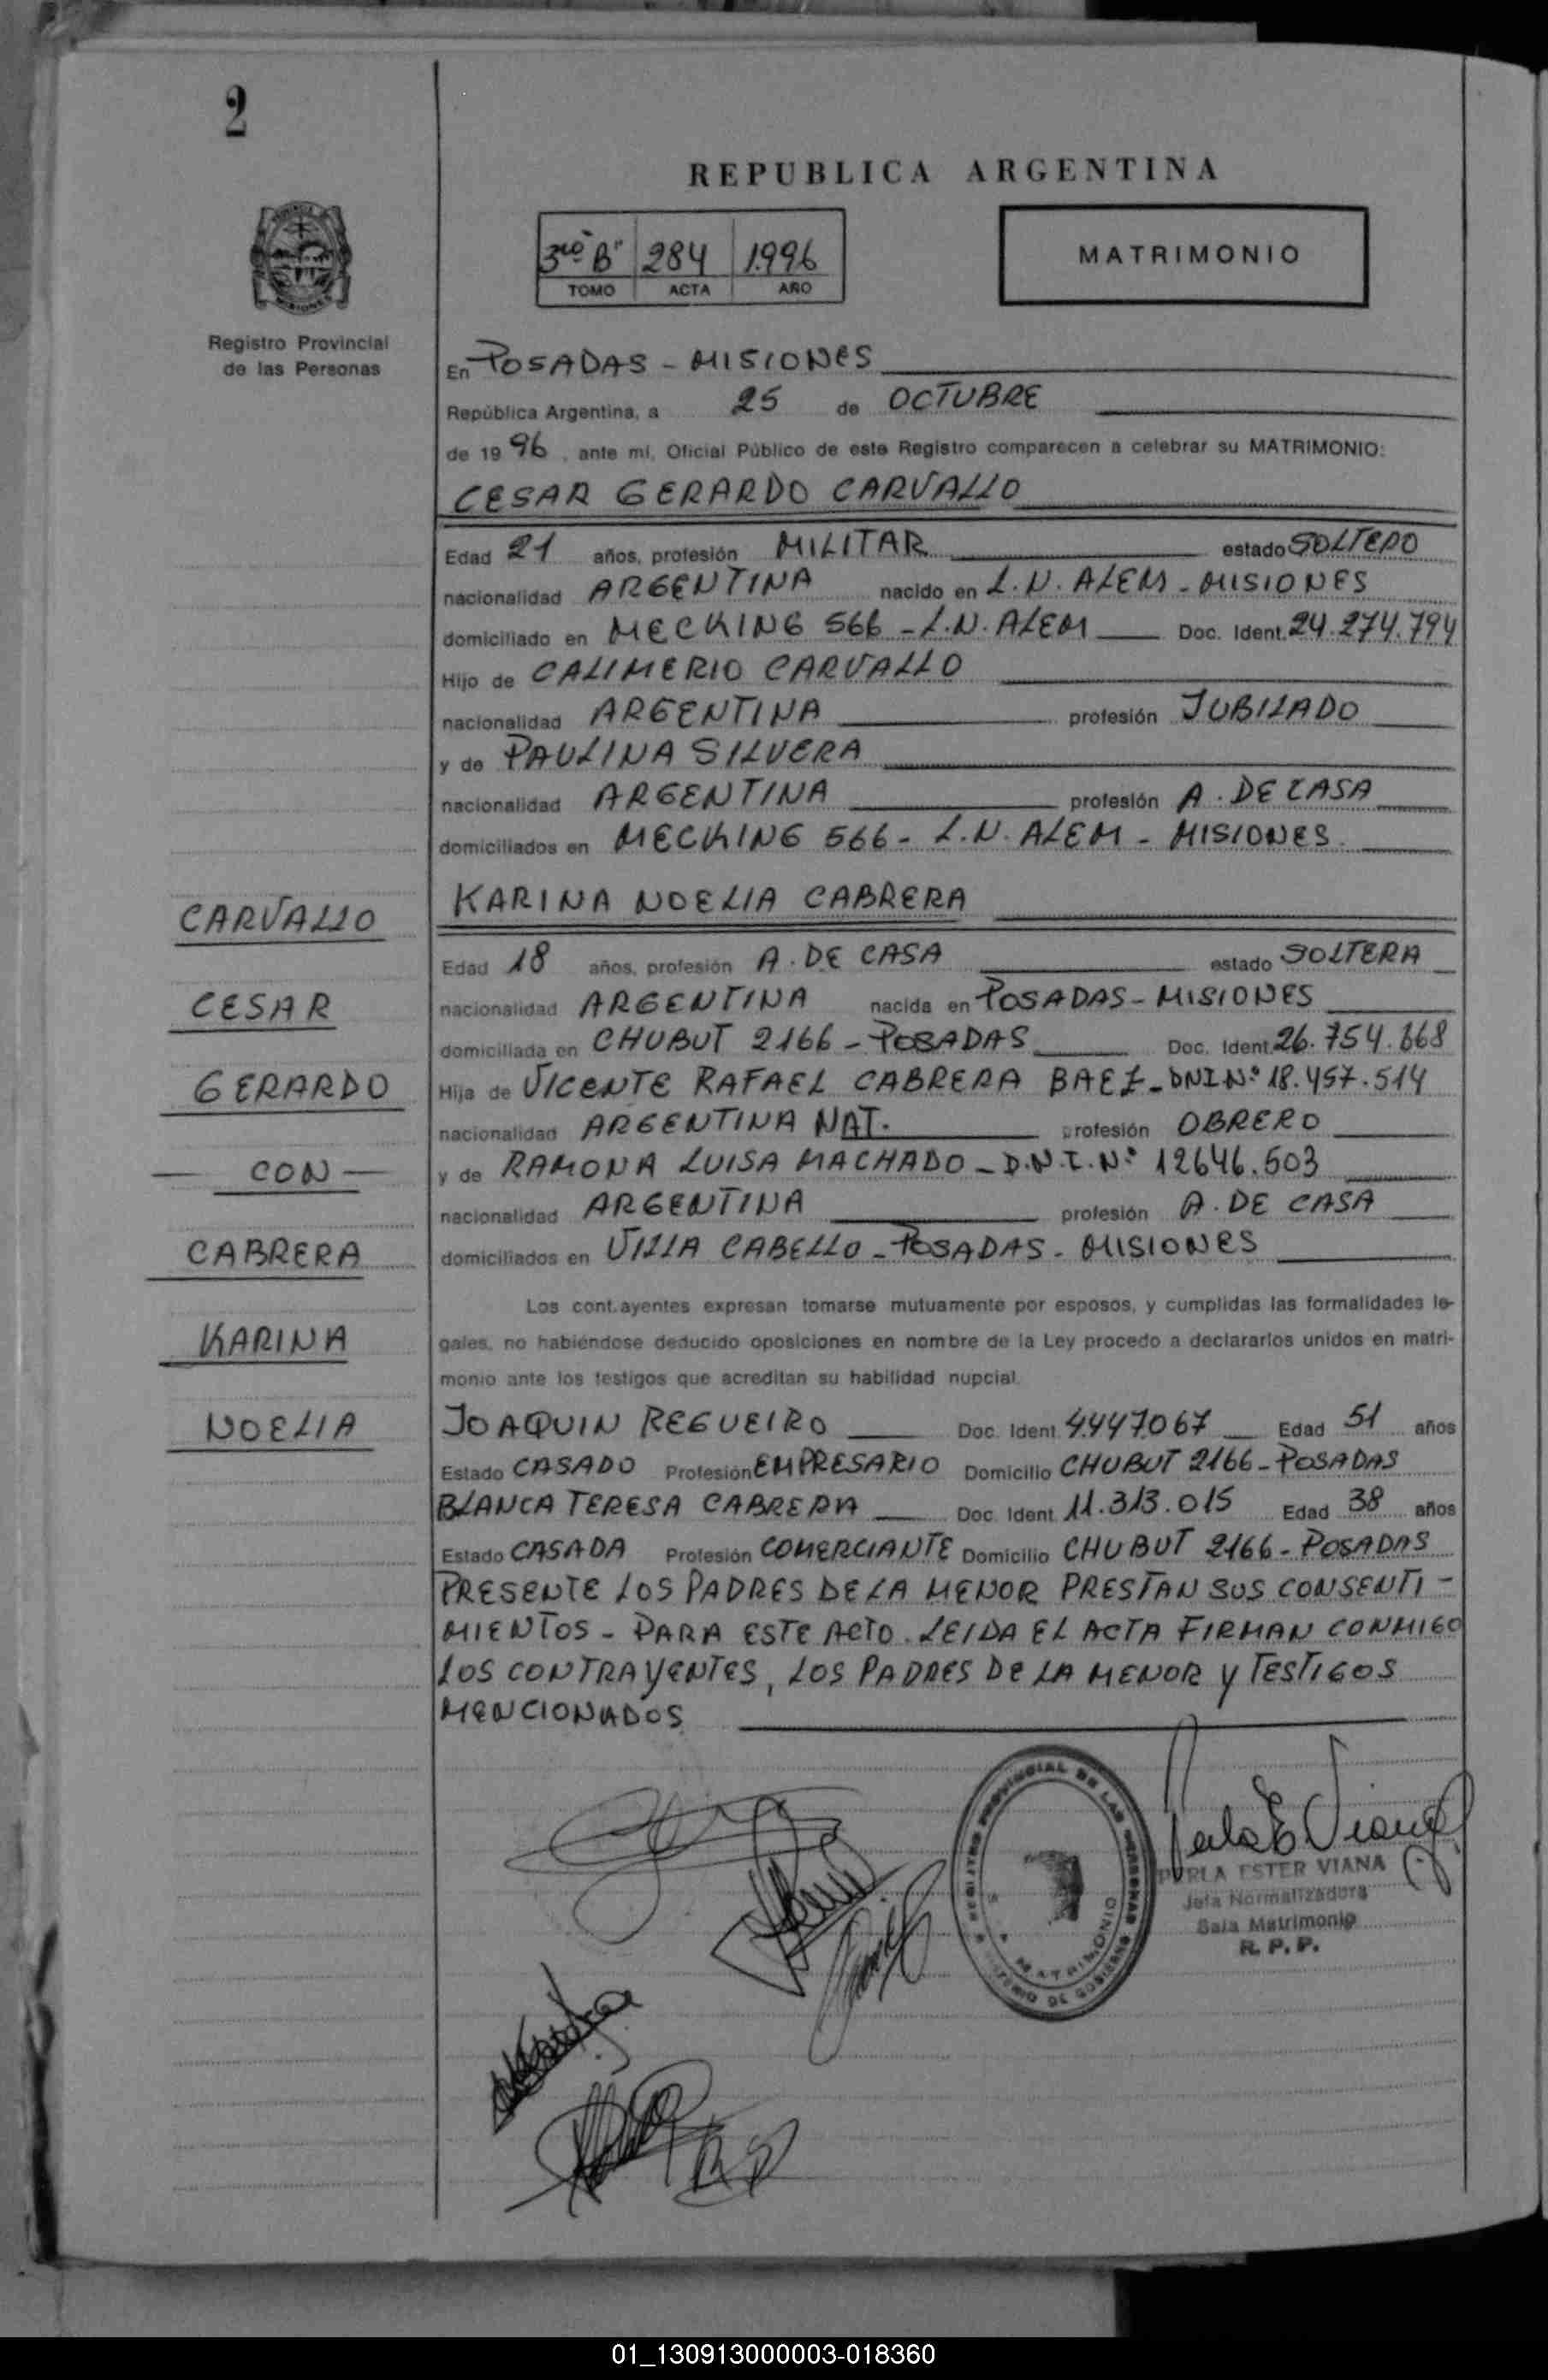 2
REPUBLICA ARGENTINA
3ro "B" 284 1996
TOMO ACTA AÑO
MATRIMONIO
Registro Provincial
de las Personas
En POSADAS - MISIONES
República Argentina, a 25 de OCTUBRE
de 19 96, ante mí, Oficial Público de este Registro comparecen a celebrar su MATRIMONIO:
CESAR GERARDO CARVALLO
Edad 21 años, profesión MILITAR estado SOLTERO
nacionalidad ARGENTINA nacido en L.N. ALEM - MISIONES
domiciliado en MECKING 566 - L.N. ALEM Doc. Ident. 24.274.794
Hijo de CALIMERIO CARVALLO
nacionalidad ARGENTINA profesión JUBILADO
y de PAULINA SILVERA
nacionalidad ARGENTINA profesión A. DE CASA
domiciliados en MECKING 566 - L.N. ALEM - MISIONES
KARINA NOELIA CABRERA
Edad 18 años, profesión A. DE CASA estado SOLTERA
nacionalidad ARGENTINA nacida en POSADAS - MISIONES
domiciliada en CHUBUT 2166 - POSADAS Doc. Ident. 26.754.868
Hija de VICENTE RAFAEL CABRERA BAEZ - DNI Nº 18.457.514
nacionalidad ARGENTINA NAT. profesión OBRERO
y de RAMONA LUISA MACHADO - D.N.I. Nº 12646.503
nacionalidad ARGENTINA profesión A. DE CASA
domiciliados en VILLA CABELLO - POSADAS - MISIONES
CARVALLO
CESAR
GERARDO
- CON -
CABRERA
KARINA
NOELIA
Los cont.ayentes expresan tomarse mutuamente por esposos, y cumplidas las formalidades le-
gales, no habiéndose deducido oposiciones en nombre de la Ley procedo a declararlos unidos en matri-
monio ante los testigos que acreditan su habilidad nupcial.
JOAQUIN REGUEIRO Doc. Ident. 4.447.067 Edad 51 años
Estado CASADO Profesión EMPRESARIO Domicilio CHUBUT 2166 - POSADAS
BLANCA TERESA CABRERA Doc. Ident. 11.313.015 Edad 38 años
Estado CASADA Profesión COMERCIANTE Domicilio CHUBUT 2166 - POSADAS
PRESENTE LOS PADRES DE LA MENOR PRESTAN SUS CONSENTI-
MIENTOS - PARA ESTE ACTO. LEIDA EL ACTA FIRMAN CONMIGO
LOS CONTRAYENTES, LOS PADRES DE LA MENOR Y TESTIGOS
MENCIONADOS
REGISTRO PROVINCIAL DE LAS PERSONAS
MATRIMONIO
MINISTERIO DE GOBIERNO
PERLA ESTER VIANA
Jefa Normalizadora
Sala Matrimonio
R. P. P.
01_130913000003-018360